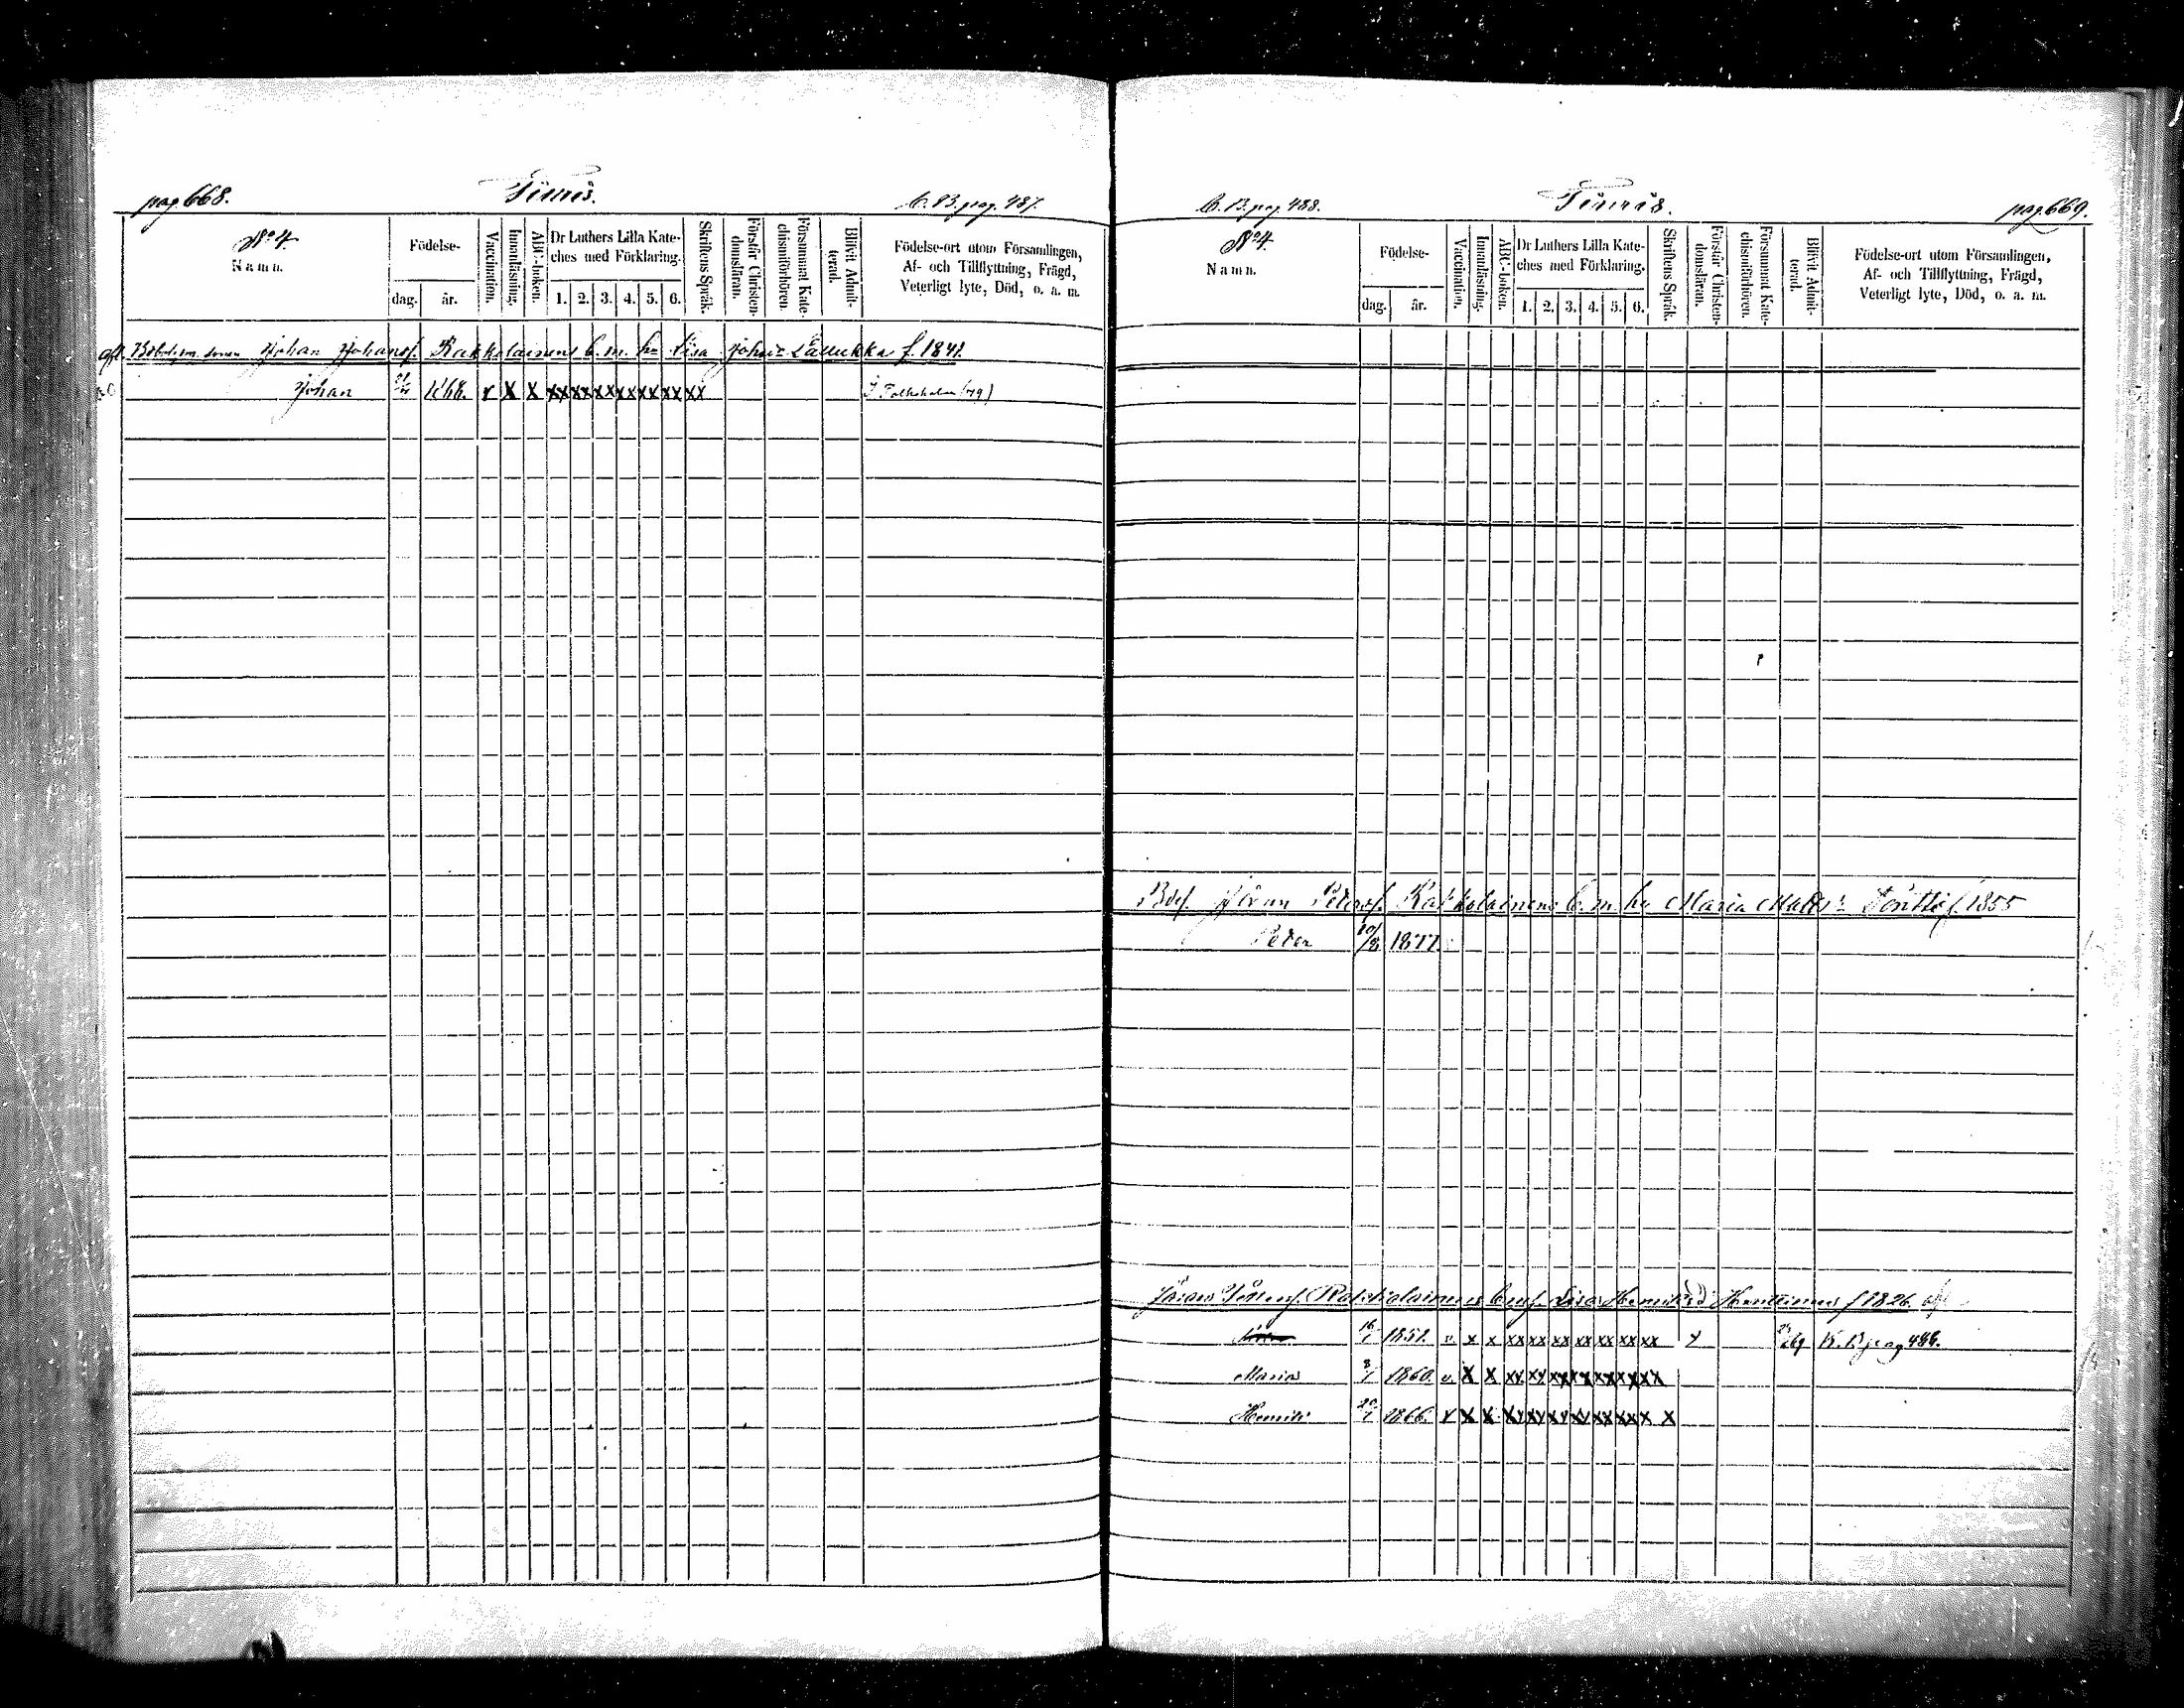 pag. 668.
C. B. pag. 487.
No 4.
Namn.
Födelse-
dag.
år.
Vaccination.
Innanläsning.
ABC-boken.
Dr Luthers Lilla Kate-
ches med Förklaring.
1. 2. 3. 4. 5. 6.
Skriftens Språk.
Förstår Christen-
domsläran.
Försummat Kate-
chismiförhören.
Blifvit Admit-
terad.
Födelse-ort utom Församlingen,
Af- och Tillflyttning, Frägd,
Veterligt lyte, Död, o. a. m.
Johan Johansf. Rakkolainens b. m. h. Lisa Johsdr Lallukka f. 1841.
Johan 1868. v X X xx xx xx xx xx xx xx
C. B. pag. 488.
Tiuris.
pag. 669.
No 4.
Namn.
Födelse-
dag.
år.
Vaccination.
Innanläsning.
ABC-boken.
Dr Luthers Lilla Kate-
ches med Förklaring.
1. 2. 3. 4. 5. 6.
Skriftens Språk.
Förstår Christen-
domsläran.
Försummat Kate-
chismiförhören.
Blifvit Admit-
terad.
Födelse-ort utom Församlingen,
Af- och Tillflyttning, Frägd,
Veterligt lyte, Död, o. a. m.
Petersf. Rakkolainens b. m. h. Maria Mattsdr f. 1855
Peter 10/8 1877.
Rakkolainens b. m. h. Lisa Henriksd. f. 1826.
16/1 1851. v x x xx xx xx xx xx xx xx x 69 K. B. pag 486.
Maria 3/1 1860. v. X X xx xx xx xx xx xx xx
Henrik 20/1 1866. v X X xx xx xx xx xx xx x X